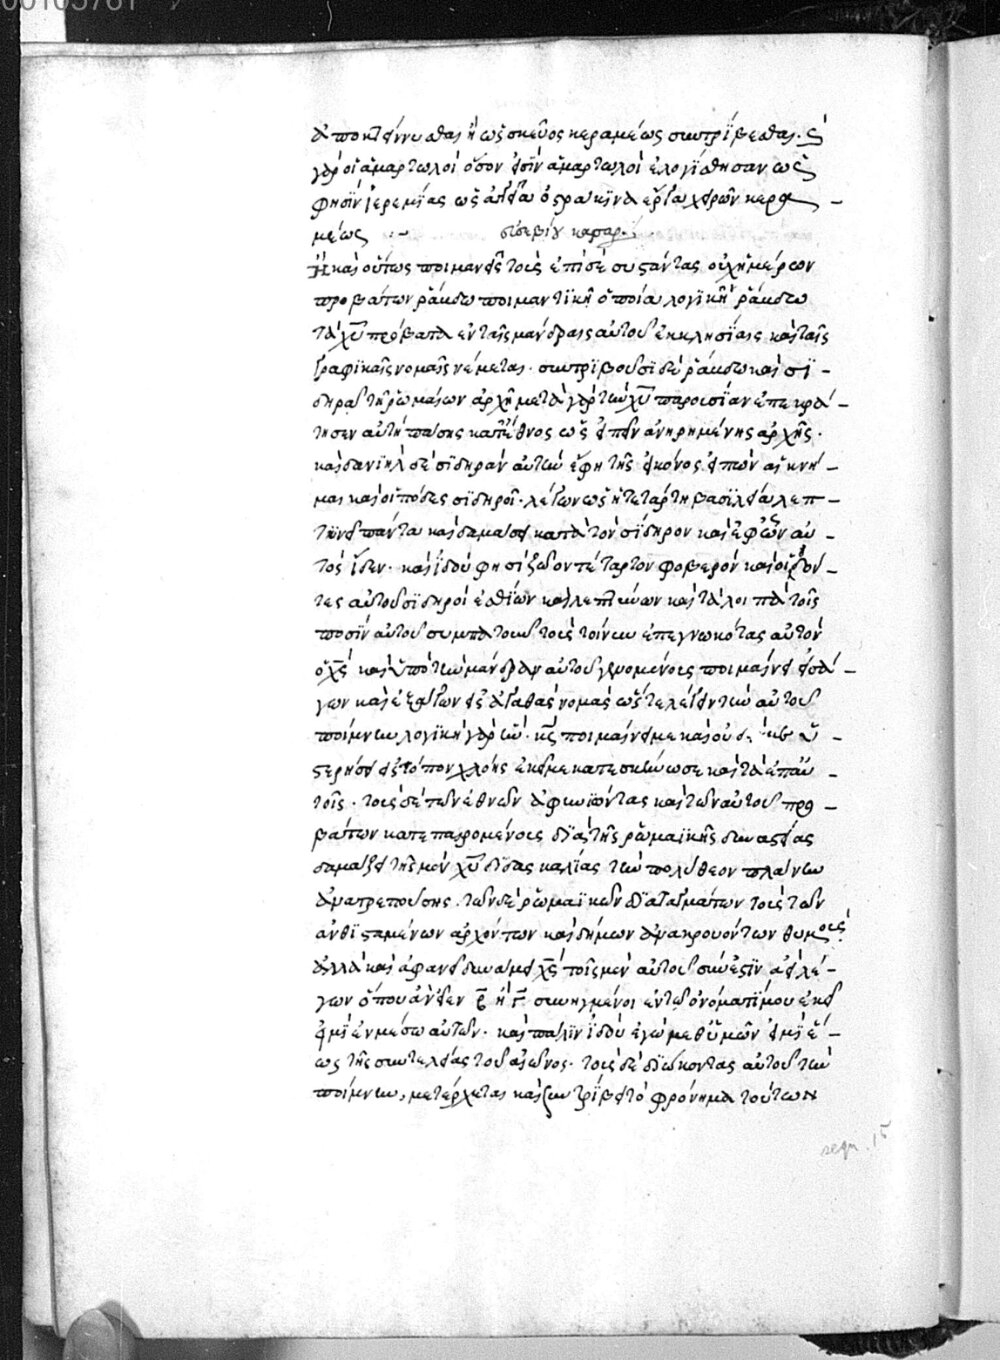 00105761
ἀποκτέννυσθαι ἢ ὡς σκεῦος κεραμέως συντρίβεσθαι. οἱ
γὰρ οἱ ἁμαρτωλοὶ ὅσον εἰσὶν ἁμαρτωλοὶ ἐλογίσθησαν ὡς
φησὶν ἱερεμίας ὡς ἀγγεῖα ὀστράκινα ἔργα χειρῶν κερα –
μέως εὐσεβίου καισαρ.
Ἢ καὶ οὕτως ποιμανεῖ τοὺς ἐπὶ σὲ συστάντας οὐχ ἡμέρων
προβάτων ῥάβδω ποιμαντικῆ ὁποία λογικῆ ῥάβδω
τὰ χῦ πρόβατα ἐν ταῖς μάνδραις αὐτοῦ ἐκκλησίαις καὶ ταῖς
γραφικαῖς νομαῖς νέμεται. συντρίβουσι δὲ ῥάβδω καὶ σι –
δηρᾶ τῆ ῥωμαίων ἀρχῆ μετὰ γὰρ τὴν χῦ παρουσίαν ἐπεκρά –
τησεν αὐτὴ πάσης κατ' ἔθνος ὡς εἰπεῖν ἀνηρημένης ἀρχῆς.
καὶ δανιὴλ δὲ σιδηρὰν αὐτὴν ἔφη τῆς εἰκόνος εἰπὼν αἱ κνῆ –
μαι καὶ οἱ πόδες σιδηροῖ. λέγων ὡς ἡ τετάρτη βασιλεία λεπ –
τυνεῖ πάντα καὶ δαμάσει κατὰ τὸν σίδηρον καὶ ἐφ' ὧν αὐ –
τὸς ἴδεν. καὶ ἰδού φησι ζῶον τέταρτον φοβερὸν καὶ οἱ ὀδόν –
τες αὐτοῦ σιδηροῖ ἐσθίων καὶ λεπτύνων καὶ τὰ λοιπὰ τοῖς
ποσὶν αὐτοῦ συμπατοῦν τοὺς τοίνυν ἐπεγνωκότας αὐτὸν
ὁ χς καὶ ὑπὸ τὴν μάνδραν αὐτοῦ γενομένους ποιμαίνει εἰσά –
γων καὶ ἐξάγων εἰς ἀγαθὰς νομὰς ὥστε λέγειν τὴν αὐτοῦ
ποίμνην λογικὴν γὰρ ὤν. κς ποιμαίνει με καὶ οὐδέν με ὑ –
στερήσει εἰς τόπον χλόης ἐκεῖ με κατεσκήνωσε καὶ τὰ ἐπὶ τού –
τοις. τοὺς δὲ τῶν ἐθνῶν ἀφηνιῶντας καὶ τῶν αὐτοῦ προ –
βάτων κατεπαιρομένους διὰ τῆς ῥωμαϊκῆς δυναστείας
δαμάζει τῆς μὲν χῦ διδασκαλίας τὴν πολύθεον πλάνην
ἀνατρεπούσης. τῶν δὲ ῥωμαϊκῶν διαταγμάτων τοὺς τῶν
ἀνθισταμένων ἀρχόντων καὶ δήμων ἀνακρουόντων θυμούς
ἀλλὰ καὶ ἀφανεῖ δυνάμει χς τοῖς μὲν αὐτοῦ σύνεστιν ἀεὶ λέ –
γων ὅπου ἂν ὦσιν β ἢ γ συνηγμένοι ἐν τῶ ὀνόματί μου ἐκεῖ
εἰμὶ ἐν μέσω αὐτῶν. καὶ πάλιν ἰδοὺ ἐγὼ μεθ' ὑμῶν εἰμὶ ἕ –
ως τῆς συντελείας τοῦ αἰῶνος. τοὺς δὲ διώκοντας αὐτοῦ τὴν
ποίμνην, μετέρχεται καὶ συντρίβει τὸ φρόνημα τούτων
segu. 15